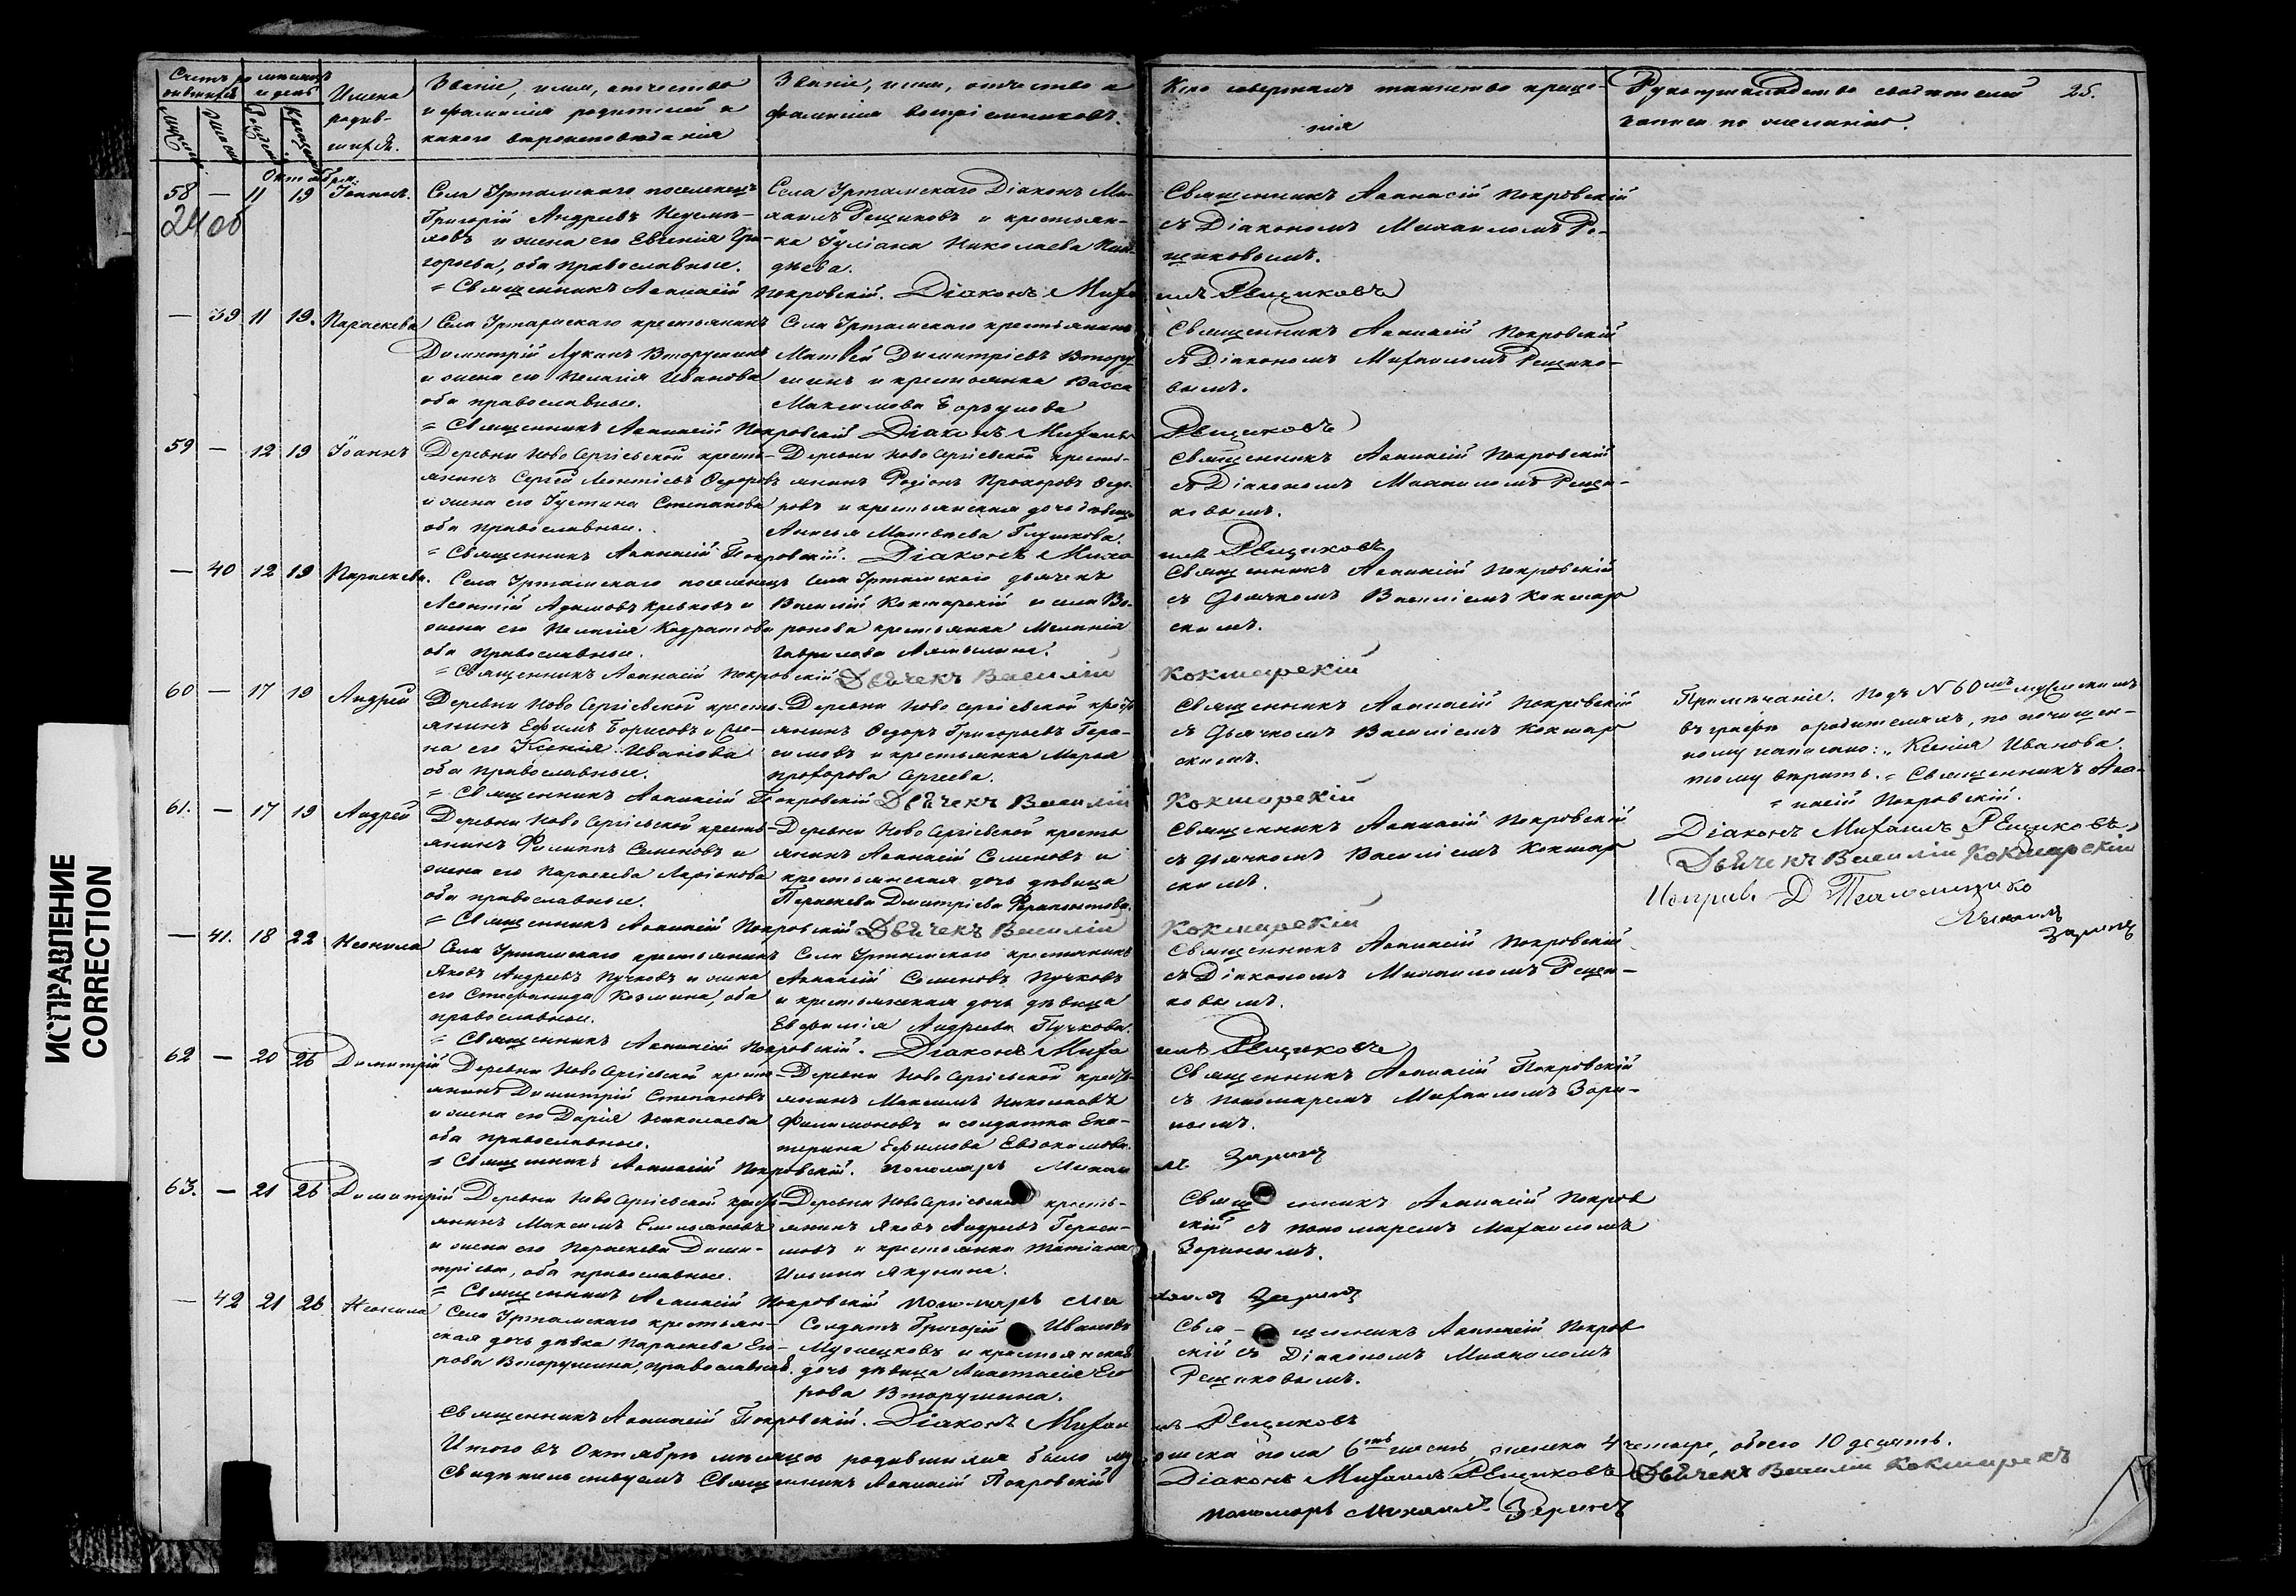 Счетъ родившихся
Мѣсяцъ и день
Имена родившихся.
Званіе, имя, отчество
и фамилія родителей и
какого вѣроисповѣданія
Званіе, имя, отчество и
фамилія воспріемниковъ.
Кто совершалъ таинство креще-
нія
Рукоприкладство свидѣтелей
записи по желанію.
25.
Октябрь.
58 — 11 19 Іоаннъ.
24 об
Села Уртамскаго поселенецъ
Григорій Андреевъ
и жена его Евгенія Гри-
горьева, оба православные.
Села Уртамскаго Діаконъ Ми-
хаилъ Рещиковъ и крестьян-
ка Іуліана Николаева
Священникъ Аѳанасій Покровскій
съ Діакономъ Михаиломъ Ре-
щиковымъ.
= Священникъ Аѳанасій Покровскій. Діаконъ Михаилъ Рещиковъ
— 39 11 19. Параскева
Села Уртамскаго крестьянинъ
Димитрій Лукинъ Вторушинъ
и жена его Пелагія Иванова
оба православные.
Села Уртамскаго крестьянинъ
Матвѣй Димитріевъ Втору-
шинъ и крестьянка Васса
Максимова
Священникъ Аѳанасій Покровскій
съ Діакономъ Михаиломъ Рещико-
вымъ.
= Священникъ Аѳанасій Покровскій Діаконъ Михаилъ Рещиковъ
59 — 12 19 Іоаннъ
Деревни Ново Сергіевской кресть-
янинъ Сергѣй Леонтіевъ Ѳедоровъ
и жена его Іустина Степанова
оба православные.
Деревни Ново Сергіевской кресть-
янинъ Родіонъ Прохоровъ Ѳедо-
ровъ и крестьянская дочь дѣвица
Анисья Матвѣева Глушкова.
Священникъ Аѳанасій Покровскій
съ Діакономъ Михаиломъ Рещи-
ковымъ.
= Священникъ Аѳанасій Покровскій. Діаконъ Михаилъ Рещиковъ
— 40 12 19 Параскева.
Села Уртамскаго поселенецъ
Леонтій Адамовъ и
жена его Пелагія Кодратова
оба православные.
Села Уртамскаго дьячекъ
Василій Кокшарскій и села Во-
ронова крестьянка Меланія
Гаврилова
Священникъ Аѳанасій Покровскій
съ Дьячкомъ Василіемъ Кокшар
скимъ.
= Священникъ Аѳанасій Покровскій Дьячекъ Василій Кокшарскій
60 — 17 19 Андрей
Деревни Ново Сергіевской кресть-
янинъ Ефимъ Борисовъ и же-
на его Ксенія Иванова
оба православные.
Деревни Ново Сергіевской кресть
янинъ Ѳедоръ Григорьевъ Гера-
симовъ и крестьянка Марья
Прохорова Сергеева.
Священникъ Аѳанасій Покровскій
съ Дьячкомъ Василіемъ Кокшар
скимъ.
Примѣчаніе. Подъ № 60мъ мужескимъ
въ графѣ о родителяхъ, по почищен-
ному написано: „Ксенія Иванова
тому вѣрить. = Священникъ Аѳа-
= насій Покровскій.
Діаконъ Михаилъ Рещиковъ,
Дьячекъ Василій Кокшарскій
Заринъ
= Священникъ Аѳанасій Покровскій Дьячекъ Василій Кокшарскій
61. — 17 19 Андрей
Деревни Ново Сергіевской кресть-
янинъ Филиппъ Семеновъ и
жена его Параскева Ларіонова
оба православные.
Деревни Ново Сергіевской кресть
янинъ Аѳанасій Семеновъ и
крестьянская дочь дѣвица
Параскева Дмитріева Ферапонтова.
Священникъ Аѳанасій Покровскій
съ дьячкомъ Василіемъ Кокшар
скимъ.
= Священникъ Аѳанасій Покровскій Дьячекъ Василій Кокшарскій
— 41. 18 22 Неонила
Села Уртамскаго крестьянинъ
Яковъ Андреевъ Пучковъ и жена
его Стефанида Козмина оба
православные.
Села Уртамскаго крестьянинъ
Аѳанасій Семеновъ Пучковъ
и крестьянская дочь дѣвица
Евфимія Андреева Пучкова.
Священникъ Аѳанасій Покровскій
съ Діакономъ Михаиломъ Рещи-
ковымъ.
= Священникъ Аѳанасій Покровскій. Діаконъ Михаилъ Рещиковъ
62 — 20 26 Димитрій
Деревни Ново Сергіевской кресть-
янинъ Димитрій Степановъ
и жена его Дарія Николаева
оба православные.
Деревни Ново Сергіевской кресть-
янинъ Максимъ Николаевъ
Филимоновъ и солдатка Ека-
терина Ефимова Евдокимова.
Священникъ Аѳанасій Покровскій
съ пономаремъ Михаиломъ Зари-
нымъ.
= Священникъ Аѳанасій Покровскій. Пономарь Михаилъ Заринъ
63. — 21 26 Димитрій
Деревни Ново Сергіевской кресть
янинъ Максимъ Емельяновъ
и жена его Параскева Дими-
тріева, оба православные.
Деревни Ново Сергіевской кресть-
янинъ Яковъ Андреевъ Гераси-
мовъ и крестьянка Татіана
Ильина Якунина.
Священникъ Аѳанасій Покров
скій съ пономаремъ Михаиломъ
Заринымъ.
= Священникъ Аѳанасій Покровскій Пономарь Михаилъ Заринъ
— 42 21 26 Неонила
Села Уртамскаго крестьян-
ская дочь дѣвка Параскева Его-
рова Вторушина, православная.
Солдатъ Григорій Ивановъ
и крестьянская
дочь дѣвица Анастасія Его
рова Вторушина.
Священникъ Аѳанасій Покров
скій съ Діакономъ Михаиломъ
Рещиковымъ.
Священникъ Аѳанасій Покровскій. Діаконъ Михаилъ Рещиковъ
Итого въ Октябрѣ мѣсяцѣ родившихся было мужеска пола 6ть шесть, женска 4 четыре, обоего 10 десять.
Свидѣтельствуемъ Священникъ Аѳанасій Покровскій Діаконъ Михаилъ Рещиковъ Дьячекъ Василій Кокшарскъ
пономарь Михаилъ Заринъ
ИСПРАВЛЕНИЕ
CORRECTION